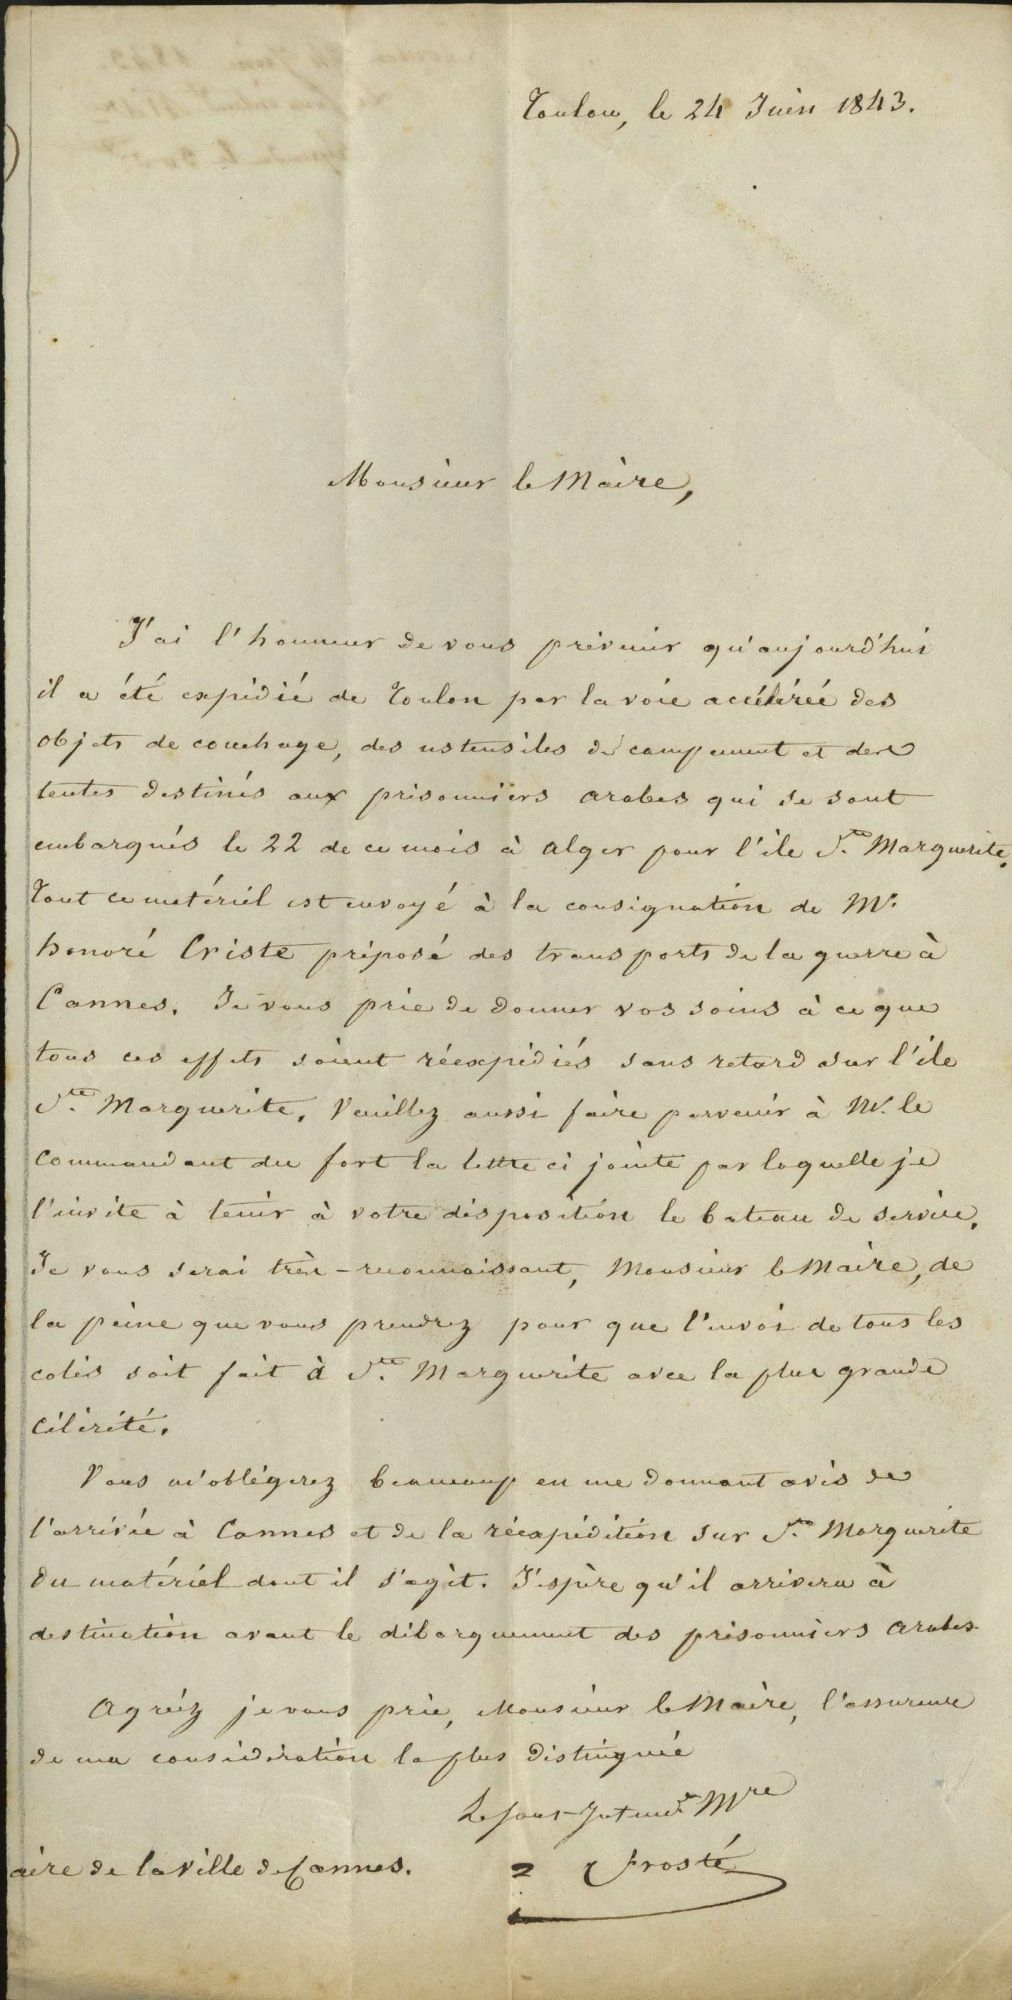 Toulon, le 24 Juin 1843.
Monsieur le Maire,
J'ai l'honneur de vous prévenir qu'aujourd'hui
il a été expédié de Toulon par la voie accélérée des
objets de couchage, des ustensiles de campement et des
tentes destinés aux prisonniers arabes qui se sont
embarqués le 22 de ce mois à Alger pour l'île Ste Marguerite.
Tout ce matériel est envoyé à la consignation de Mr.
honoré Criste préposé des transports de la guerre à
Cannes. Je vous prie de donner vos soins à ce que
tous ces effets soient réexpédiés sans retard sur l'île
Ste. Marguerite. Veuillez aussi faire parvenir à Mr. le
Commandant du fort la lettre ci jointe par laquelle je
l'invite à tenir à votre disposition le bateau de service.
Je vous serai très-reconnaissant, Monsieur le Maire, de
la peine que vous prendrez pour que l'envoi de tous les
colis soit fait à Ste. Marguerite avec la plus grande
célérité.
Vous m'obligerez beaucoup en me donnant avis de
l'arrivée à Cannes et de la réexpédition sur Ste. Marguerite
du matériel dont il s'agit. J'espère qu'il arrivera à
destination avant le débarquement des prisonniers arabes.
Agréez je vous prie, Monsieur le Maire, l'assurance
de ma considération la plus distinguée
Le Sous-Intendt Mre
aire de la Ville de Cannes.
Frosté